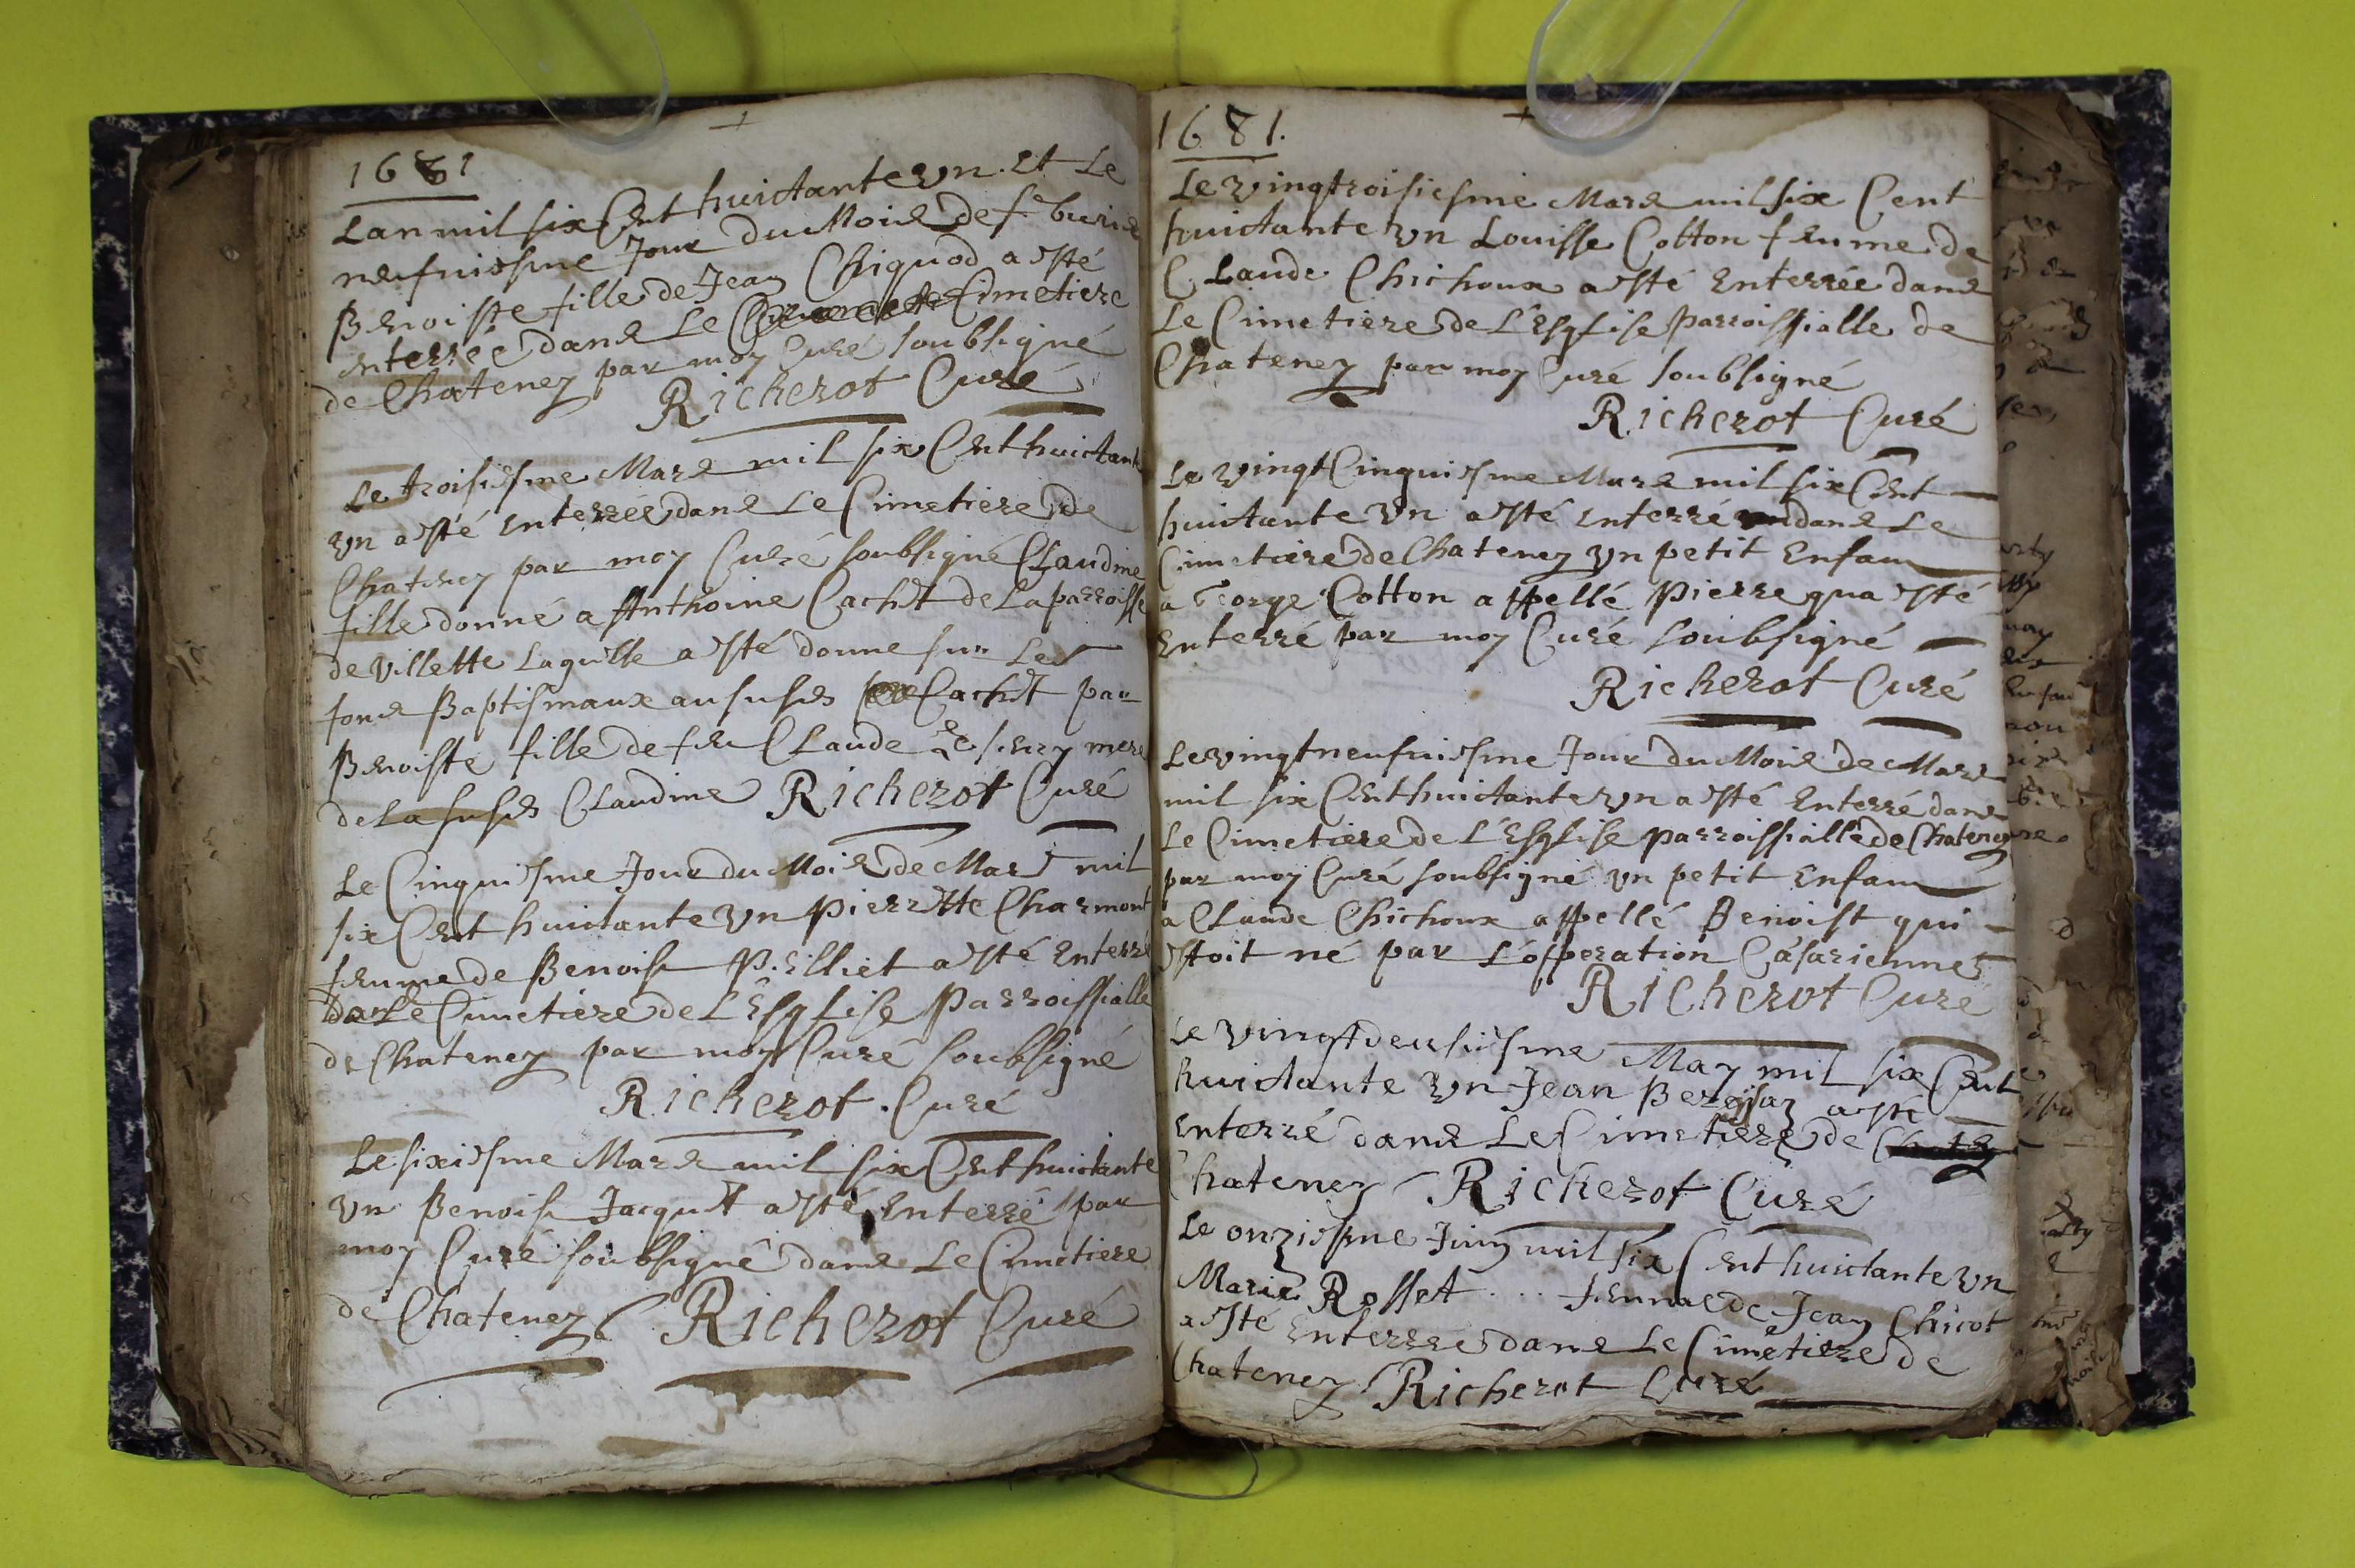 1681
Lan mil six Cent huictante vn. et Le
neufuiesme Jour du Mois de feburier
Benoiste fille de Jean Chiquod a esté
enterrée dans Le Cimetiere
de Chatenez par moy Curé soubsigné
Richerot Curé
Le troisiesme Mars mil six Cent huictante
vn a esté enterrée dans Le Cimetiere de
Chatenez par moy Curé soubsigné Claudine
fille donné a Anthoine Cachet de La parroisse
de Villette Laquelle a esté donne sur Les
fons Baptismaux au susdt Cachet par
Benoiste fille de feu Claude mere
de La susdt Claudine Richerot Curé
Le Cinquiesme Jour du Mois de Mars mil
six Cent huictante vn Pierrette Charmont
femme de Benoist Pilliet a esté Enterré
dans Le Cimetiere de L'Esglise Parroissialle
de Chatenez par moy Curé soubsigné
Richerot. Curé
Le sixiesme Mars mil six Cent huictante
vn Benoist Jacquet a esté Enterré par
moy Curé soubsigné dans Le Cimetiere
de Chatenez Richerot Curé
1681.
Le vingtroisiesme Mars mil six Cent
huictante vn Louisse Cotton femme de
Claude Chichoux a esté Enterrée dans
Le Cimetiere de L'Esglise Parroissialle de
Chatenez par moy Curé soubsigné
Richerot Curé
Le vingt Cinquiesme Mars mil six Cent
huictante vn a esté enterré dans Le
Cimetiere de Chatenez vn petit Enfant
a George Cotton appellé Pierre qua esté
Enterré par moy Curé soubsigné
Richerot Curé
Le vingt neufuiesme Jour du Mois de Mars
mil six Cent huictante vn a esté Enterré dans
Le Cimetiere de L'Esglise parroissialle de Chatenez
par moy Curé soubsigné vn petit Enfant
a Claude Chichoux appellé Benoist qui
estoit né par L'opperation Cásarienne
Richerot Curé
Le vingtdeusiesme May mil six Cent
huictante vn Jean a esté
enterré dans Le Cimetiere de
Chatenez Richerot Curé
Le onziesme Juin mil six Cent huictante vn
Marie Rosset ... femme de Jean Chicot
a esté enterrée dans Le Cimetiere de
Chatenez Richerot Curé